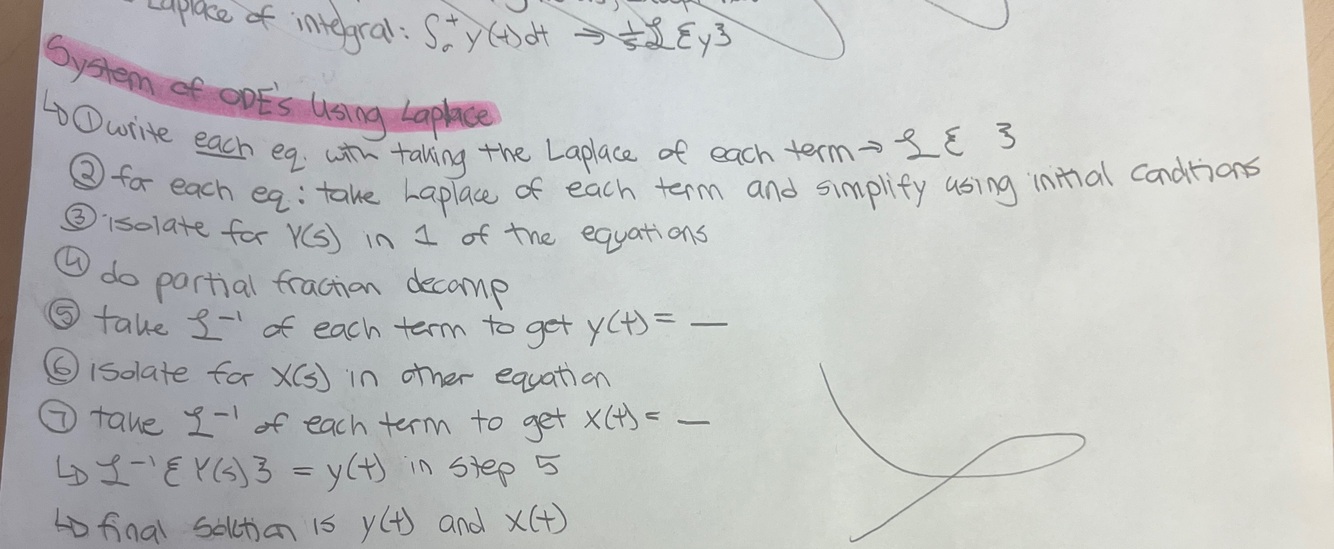 Laplace of integral: ∫₀ᵗ y(t)dt → 1/s ℒ{y}
System of ODE's Using Laplace
↳ ① write each eq. with taking the Laplace of each term → ℒ{ }
② for each eq: take Laplace of each term and simplify using initial conditions
③ isolate for Y(s) in 1 of the equations
④ do partial fraction decomp
⑤ take ℒ⁻¹ of each term to get y(t) = —
⑥ isolate for X(s) in other equation
⑦ take ℒ⁻¹ of each term to get x(t) = —
↳ ℒ⁻¹{Y(s)} = y(t) in step 5
↳ final solution is y(t) and x(t)